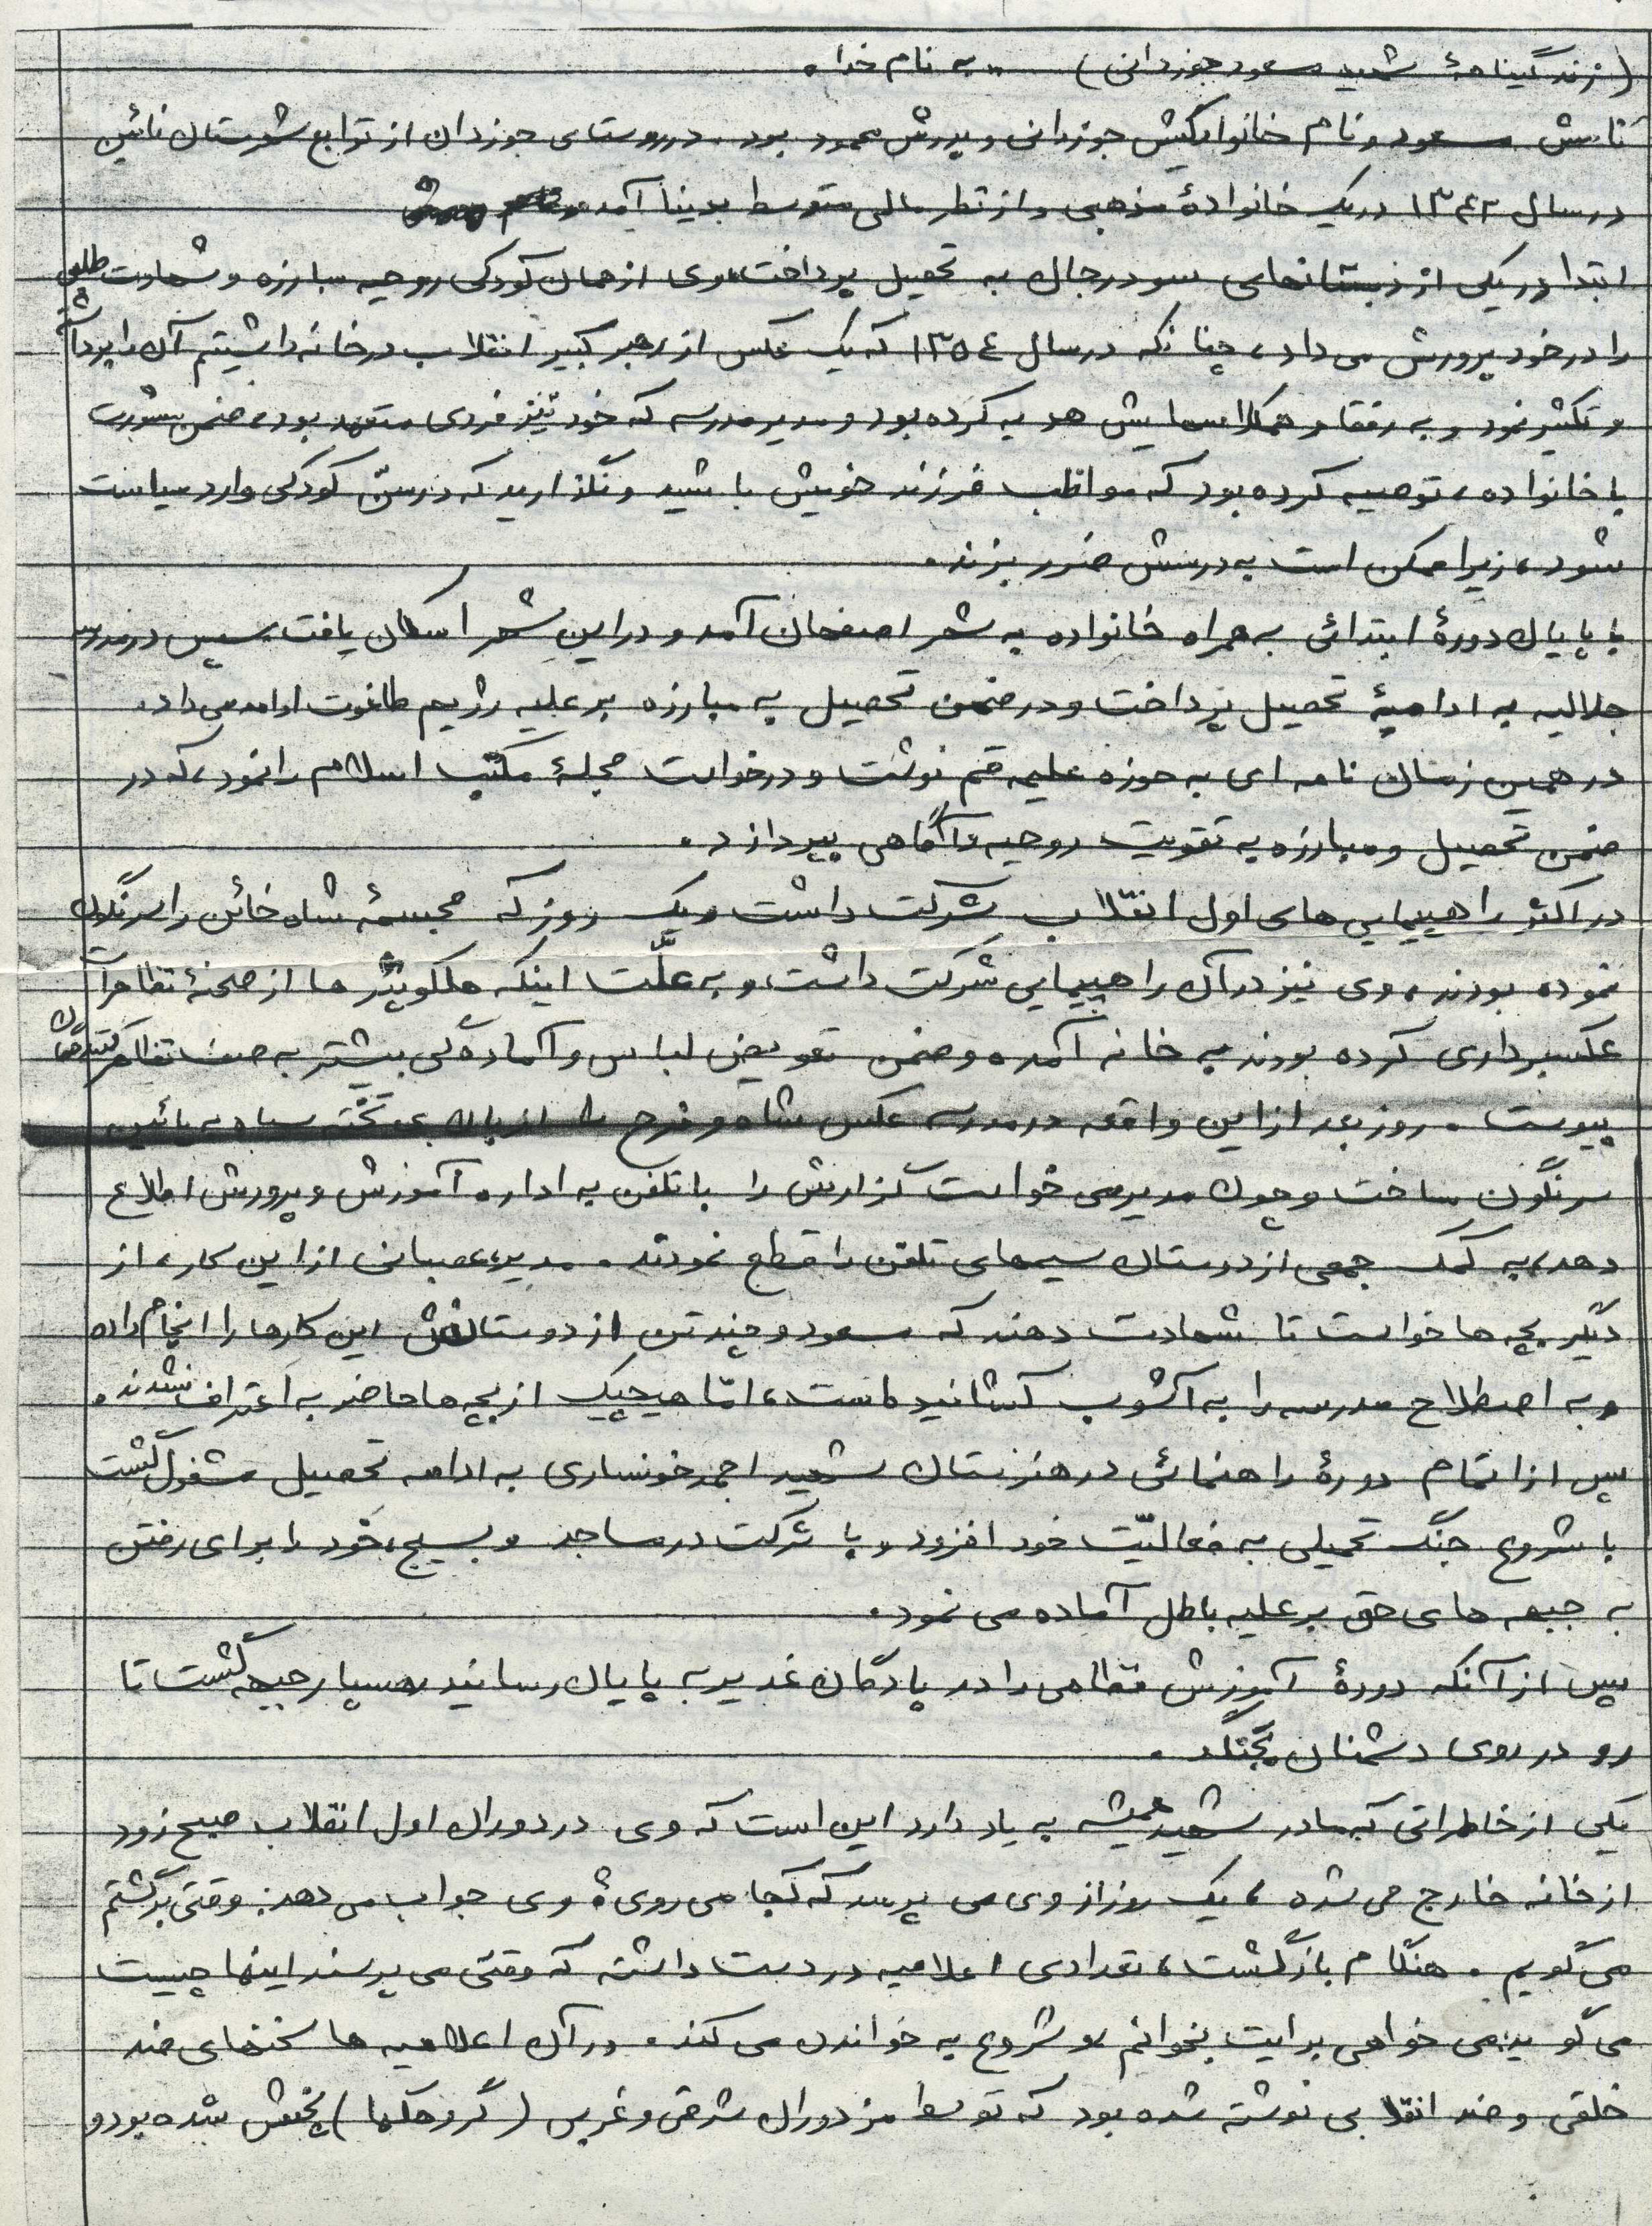 (زندگینامهٔ شهید مسعود جوزدانی) "به نام خدا"
نامش مسعود و نام خانوادگیش جوزدانی و پدرش محمود بود. در روستای جوزدان از توابع شهرستان نائین
در سال ۱۳۴۲ در یک خانوادهٔ مذهبی و از نظر مالی متوسط بدینا آمد
ابتدا در یکی از دبستانهای سودرجان به تحصیل پرداخت، وی از همان کودکی روحیه مبارزه و شهادت طلبی
را در خود پرورش می داد، چنانکه در سال ۱۳۵۴ که یک عکس از رهبر کبیر انقلاب در خانه داشیتم آن را برداشته
و تکثیر نمود و به رفقا و همکلاسهایش هدیه کرده بود و مدیر مدرسه که خود نیز فردی متعهد بود، ضمن مشورت
با خانواده، توصیه کرده بود که مواظب فرزند خویش باشید و نگذارید که در سنّ کودکی وارد سیاست
شود، زیرا ممکن است به درسش ضرر بزند.
با پایان دورهٔ ابتدائی به همراه خانواده به شهر اصفهان آمد و در این شهر اسکان یافت سپس در مدرسه
جلالیه به ادامهٔ تحصیل پرداخت و در ضمن تحصیل به مبارزه بر علیه رژیم طاغوت ادامه می داد.
در همین زمان نامه ای به حوزه علیمه قم نوشت و درخواست مجلهٔ مکتب اسلام را نمود، که در
ضمن تحصیل و مبارزه به تقویت روحیه و آگاهی بپردازد.
در اکثر راهپیمایی های اول انقلاب شرکت داشت و یک روز که مجسمهٔ شاه خائن را سرنگون
نموده بودند، وی نیز در آن راهپیمایی شرکت داشت، و به علّت اینکه هلکوپتر ها از صحنهٔ تظاهرات
عکسبرداری کرده بودند به خانه آمده و ضمن تعویض لباس و آمادگی بیشتر به صف تظاهر کنندگان
پیوست. روز بعد از این واقعه در مدرسه عکس شاه و فرح را از بالای تخته سیاه به پائین
سرنگون ساخت و چون مدیر می خواست گزارش را با تلفن به اداره آموزش و پرورش اطلاع
دهد، به کمک جمعی از دوستان سیمهای تلفن را قطع نمودند. مدیر، عصبانی از این کار، از
دیگر بچه ها خواست تا شهادت دهند که مسعود و چند تن از دوستانش این کارها را انجام داده
و به اصطلاح مدرسه را به آشوب کشانید ه است، امّا هیچیک از بچه ها حاضر به اعتراف نشدند.
پس از اتمام دورهٔ راهنمائی در هنرستان شهید احمد خونساری به ادامه تحصیل مشغول گشت
با شروع جنگ تحمیلی به فعالیّت خود افزود و با شرکت در مساجد و بسیج، خود را برای رفتن
به جبهه های حق بر علیه باطل آماده می نمود.
پس از آنکه دورهٔ آموزش نظامی را در پادگان غدیر به پایان رسانید رهسپار جبهه گشت تا
رو در روی دشمنان بجنگد.
یکی از خاطراتی که مادر شهید همیشه به یاد دارد این است که وی در دوران اول انقلاب صبح زود
از خانه خارج می شده، یک روز از وی می پرسد که کجا می روی؟ وی جواب می دهد: وقتی برگشتم
می گویم. هنگام بازگشت، تعدادی اعلامیه در دست داشته که وقتی می پرسند اینها چیست
می گوید: می خواهی برایت بخوانم و شروع به خواندن می کند. در آن اعلامیه ها سخنهای ضد
خلقی و ضد انقلابی نوشته شده بود که توسط مزدوران شرقی و غربی (گروهکها) پخش شده بود و